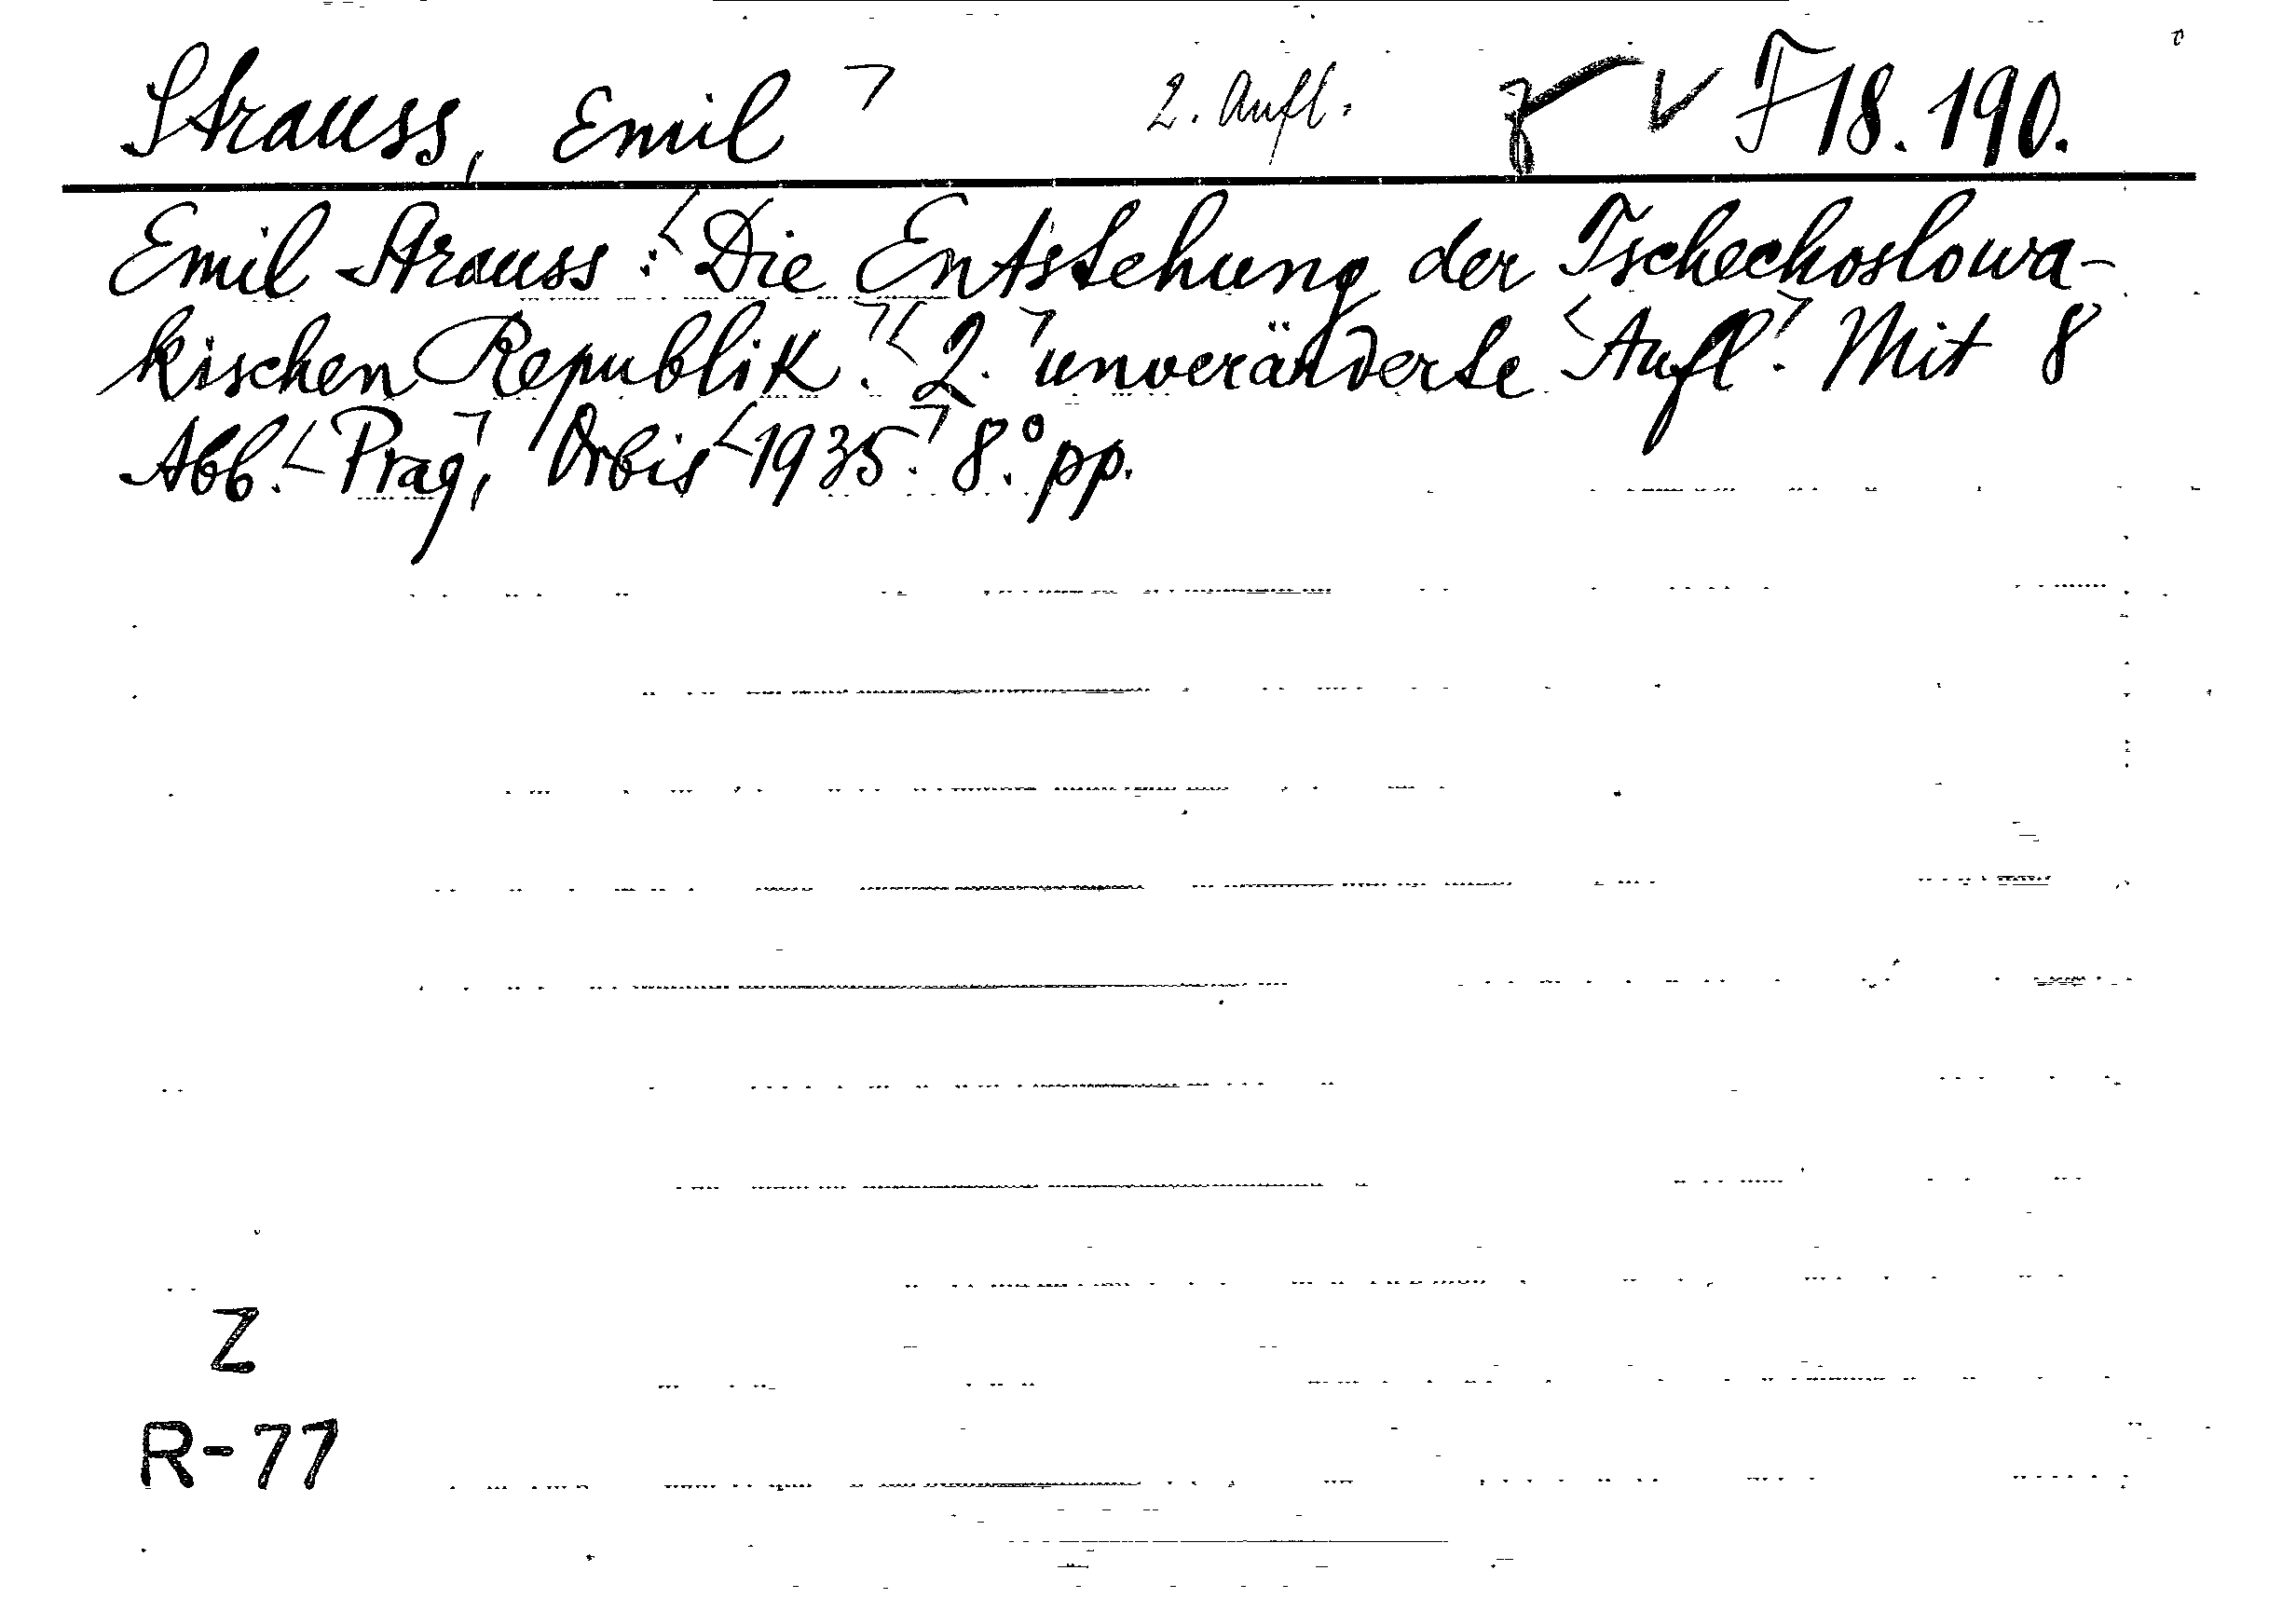 Strauss, Emil 2. Aufl. F 18.190.
Emil Strauss: Die Entstehung der Tschechoslowa-
kischen Republik. 2. unveränderte Aufl. Mit 8
Abb. Prag, Orbis 1935. 8.° pp.
Z
R-77